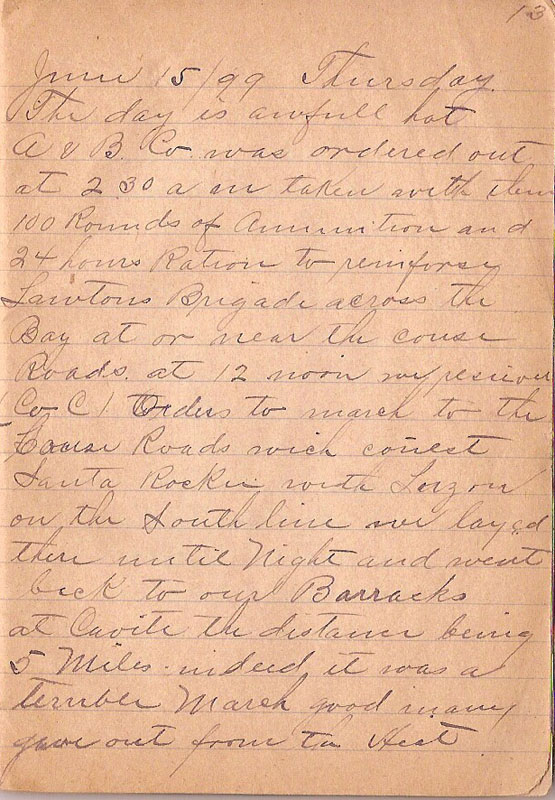 13
June 15/99 Thursday.
The day is awfull hot
A & B. Co. was ordered out
at 2.30 a m taken with them
100 Rounds of Ammunition and
24 hours Ration to reinforse
Lawtons Brigade across the
Bay at or near the couse
Roads. at 12 noon we resieved
(Co C) Orders to march to the
Couse Roads wich conest
Santa Rocke with Luzon
on the South line we layed
there until Night and went
back to our Barracks
at Cavite the distance being
5 Miles. indeed it was a
terrible March good many
gave out from the Heat.